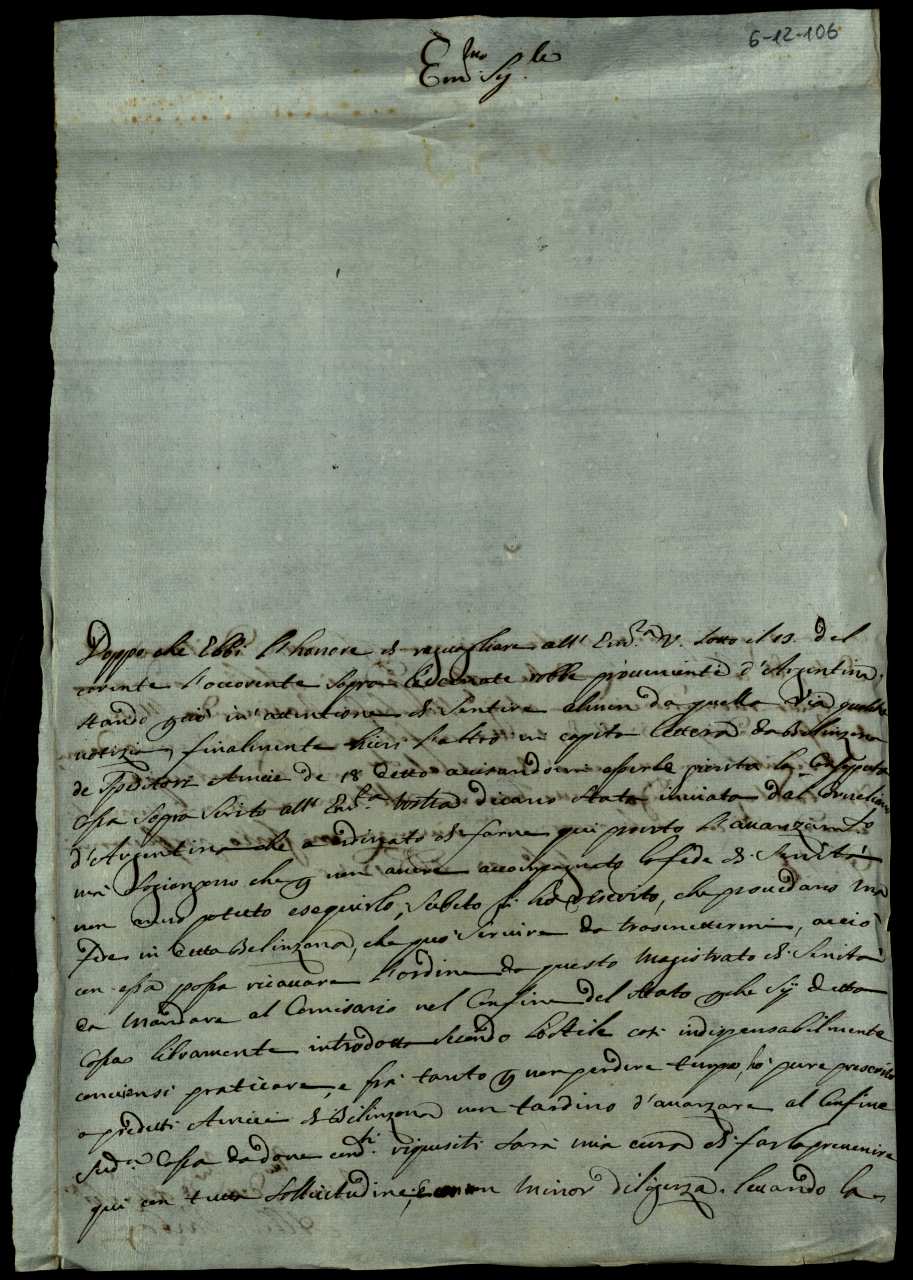 6-12-106
Em.mo Sig.le
Doppo che Ebbi l'honore di raguagliare all' Em.za V. sotto il 13. del
corente l'occorente sopra le robbe proveniente d'Argentina,
stando in attentione di sentire almen da quella Via qualche
notizia, finalmente hieri l'altro mi capitò lettera da Bellinzona
de Speditori Amici de 18 detto avisandomi esserle gionta la
Cassa sopra scritto all' Em.za Vostra dicano stata inviata da
d'Argentina che a ordinato di farne qui pronto l'avanzam.to
mi sogionzero che non avere accompagnato la fede di Sanità
non anno potuto eseguirlo, subito li hò riscrito, che provedano una
Fede in detta Belinzona, che può servire da trasmettermi, acciò
con essa possa ricavare l'ordine da questo Magistrato di Sanità
da Mandare al Comissario nel Confine del Stato che sij detta
Cassa liberamente introdotta secondo lo stile così indispensabilmente
conviensi praticare, e frà tanto non perdere tempo, hò pure prescrito
a predetti Amici di Bilinzona non tardino d'avanzare al Confine
Sud.a Cassa da dove con d.ti riquisiti sarà mia cura di farla prevenire
qui con tutta sollicitudine, e con non minor diligenza, levando la